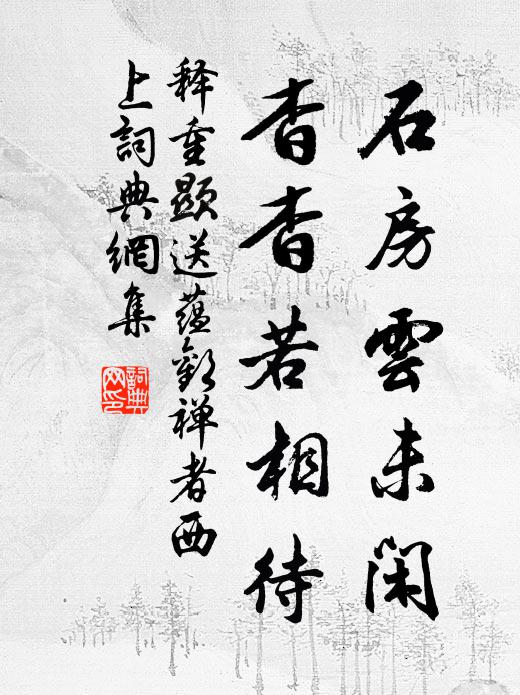 石房雲未閑
杳杳若相待
释重顯送蘊歡禅者西
上詞典網集
詞典
网印